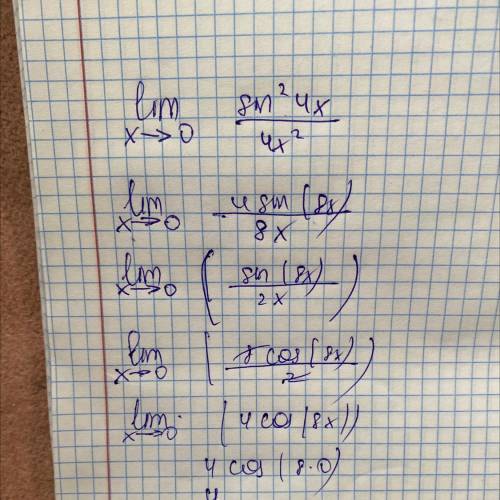 lim x→0 sin² 4x / 4x²
lim x→0 4 sin (8x) / 8x
lim x→0 ( sin (8x) / 2x )
lim x→0 ( 8 cos (8x) / 2 )
lim x→0 (4 cos (8x))
4 cos (8·0)
4